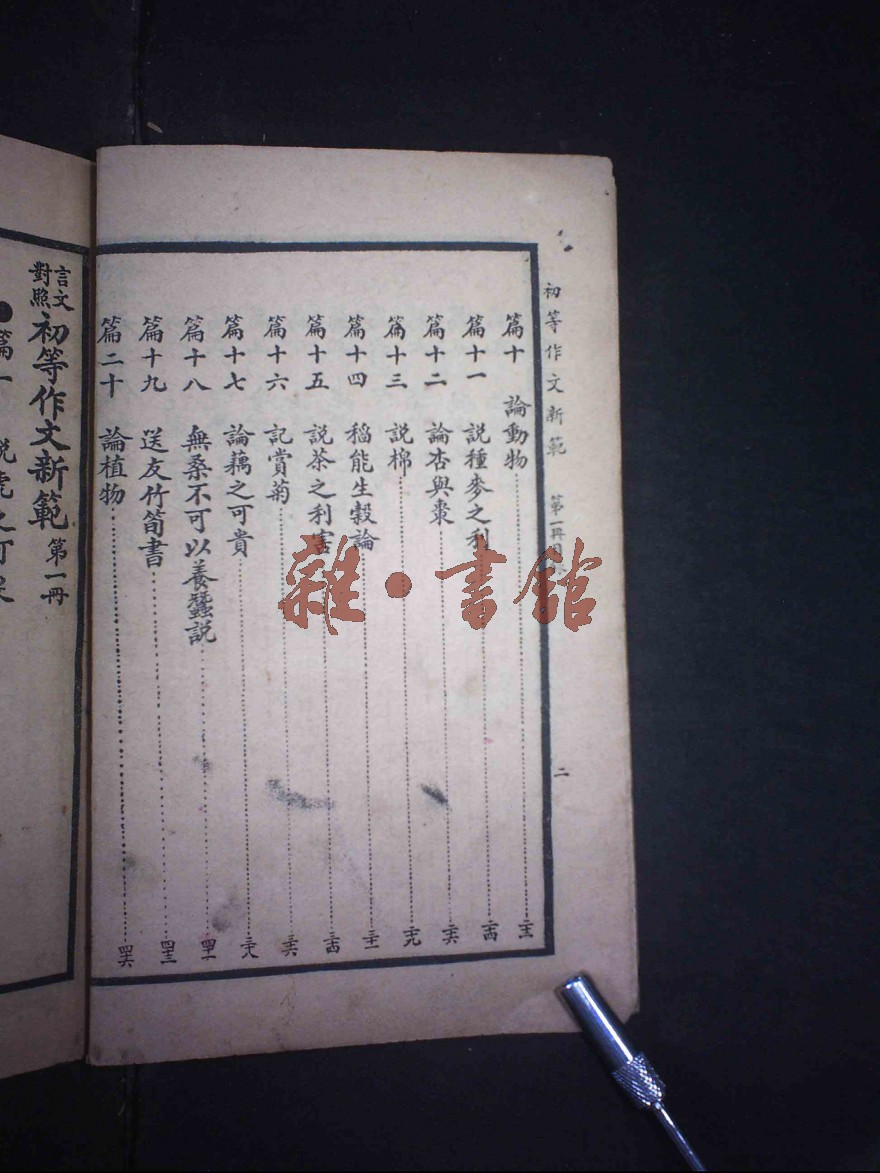 初等作文新範 第一冊目錄 二
篇十 論動物 二三
篇十一 說種麥之利 二四
篇十二 論杏與棗 二六
篇十三 說棉 二九
篇十四 稻能生穀論 三一
篇十五 説茶之利害 三四
篇十六 記賞菊 三六
篇十七 論藕之可貴 三八
篇十八 無桑不可以養蠶説 四一
篇十九 送友竹筍書 四三
篇二十 論植物 四六
言文對照 初等作文新範 第一冊
篇一 說虎之可
雜·書館